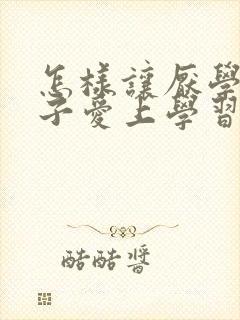 怎樣讓厭學
子愛上學習
酷酷醬